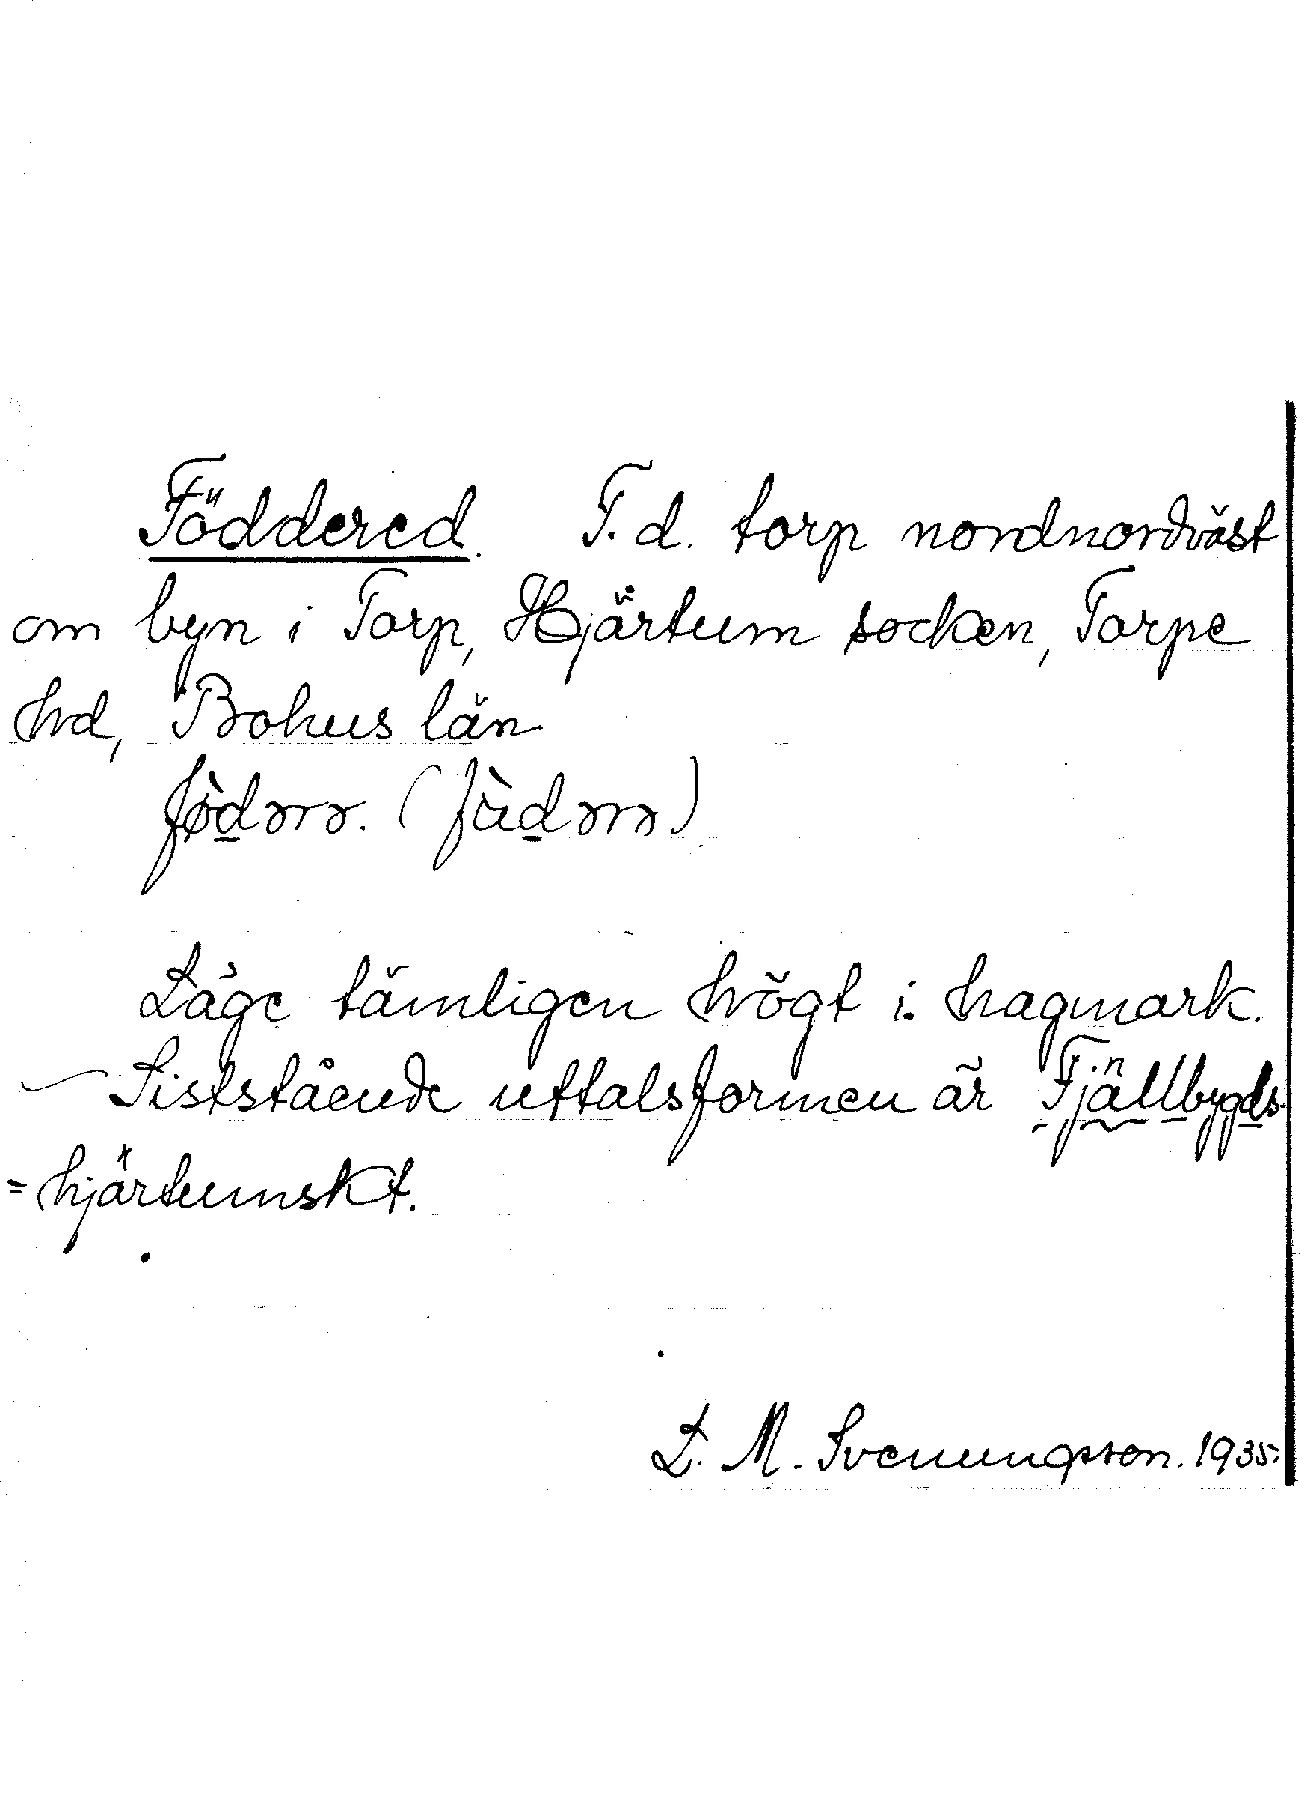 Föddered. F. d. torp nordnordväst
om byn i Torp, Hjärtum socken, Torpe
hd, Bohus län
fø̀d̲ərə. (fùd̲ərə)
Läge tämligen högt i hagmark.
– Siststående uttalsformen är Fjällbygds-
=hjärtumskt.
L. M. Svenungsson. 1935.